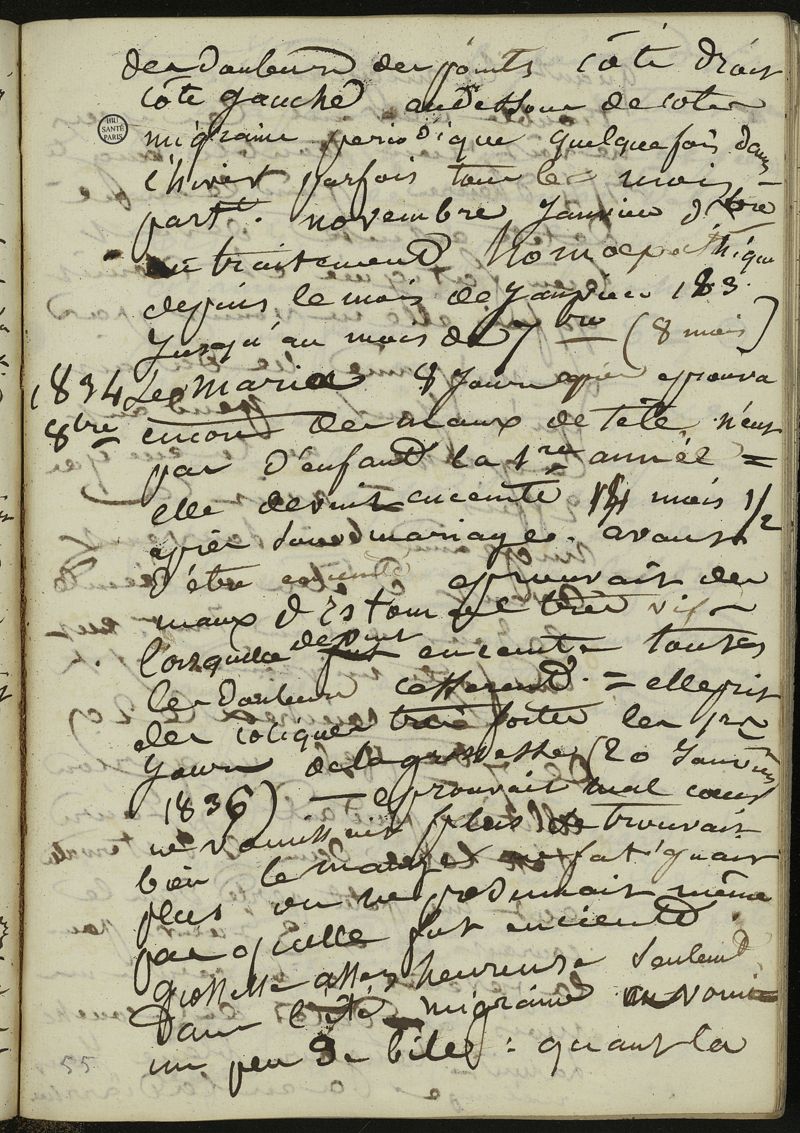 des douleurs des points côté droit
côté gauche audessous de cotes
BIU SANTÉ PARIS
migraine periodique quelquefois dans
l'hiver parfois tous les mois =
partt. novembre Janvier
traitement homoepathique
depuis le mois de Janvier 183
Jusqu'au mois de 7bre (8 mois)
1834 Se Maria 8 Jours après eprouva
8bre encore des maux de tete n'eut
pas d'enfant la 1re année =
elle devint enceinte 14 mois 1/2
après son mariage. avant
d'être enceinte eprouvait des
maux d'Estomac très vifs
lorsquelle devint enceinte toutes
les douleurs cesserent. = elle prit
des coliques très fortes les 1rs
Jours de la grossesse (20 Janvier
1836) — eprouvait mal coeur
ne vomissait plus se trouvait
bien le manger ne fatiguait
plus on ne presumait même
pas qu'elle fut enceinte.
grossesse assez heureuse seulemt
dans l'été migraine vomit
un peu de bile : quant la
55